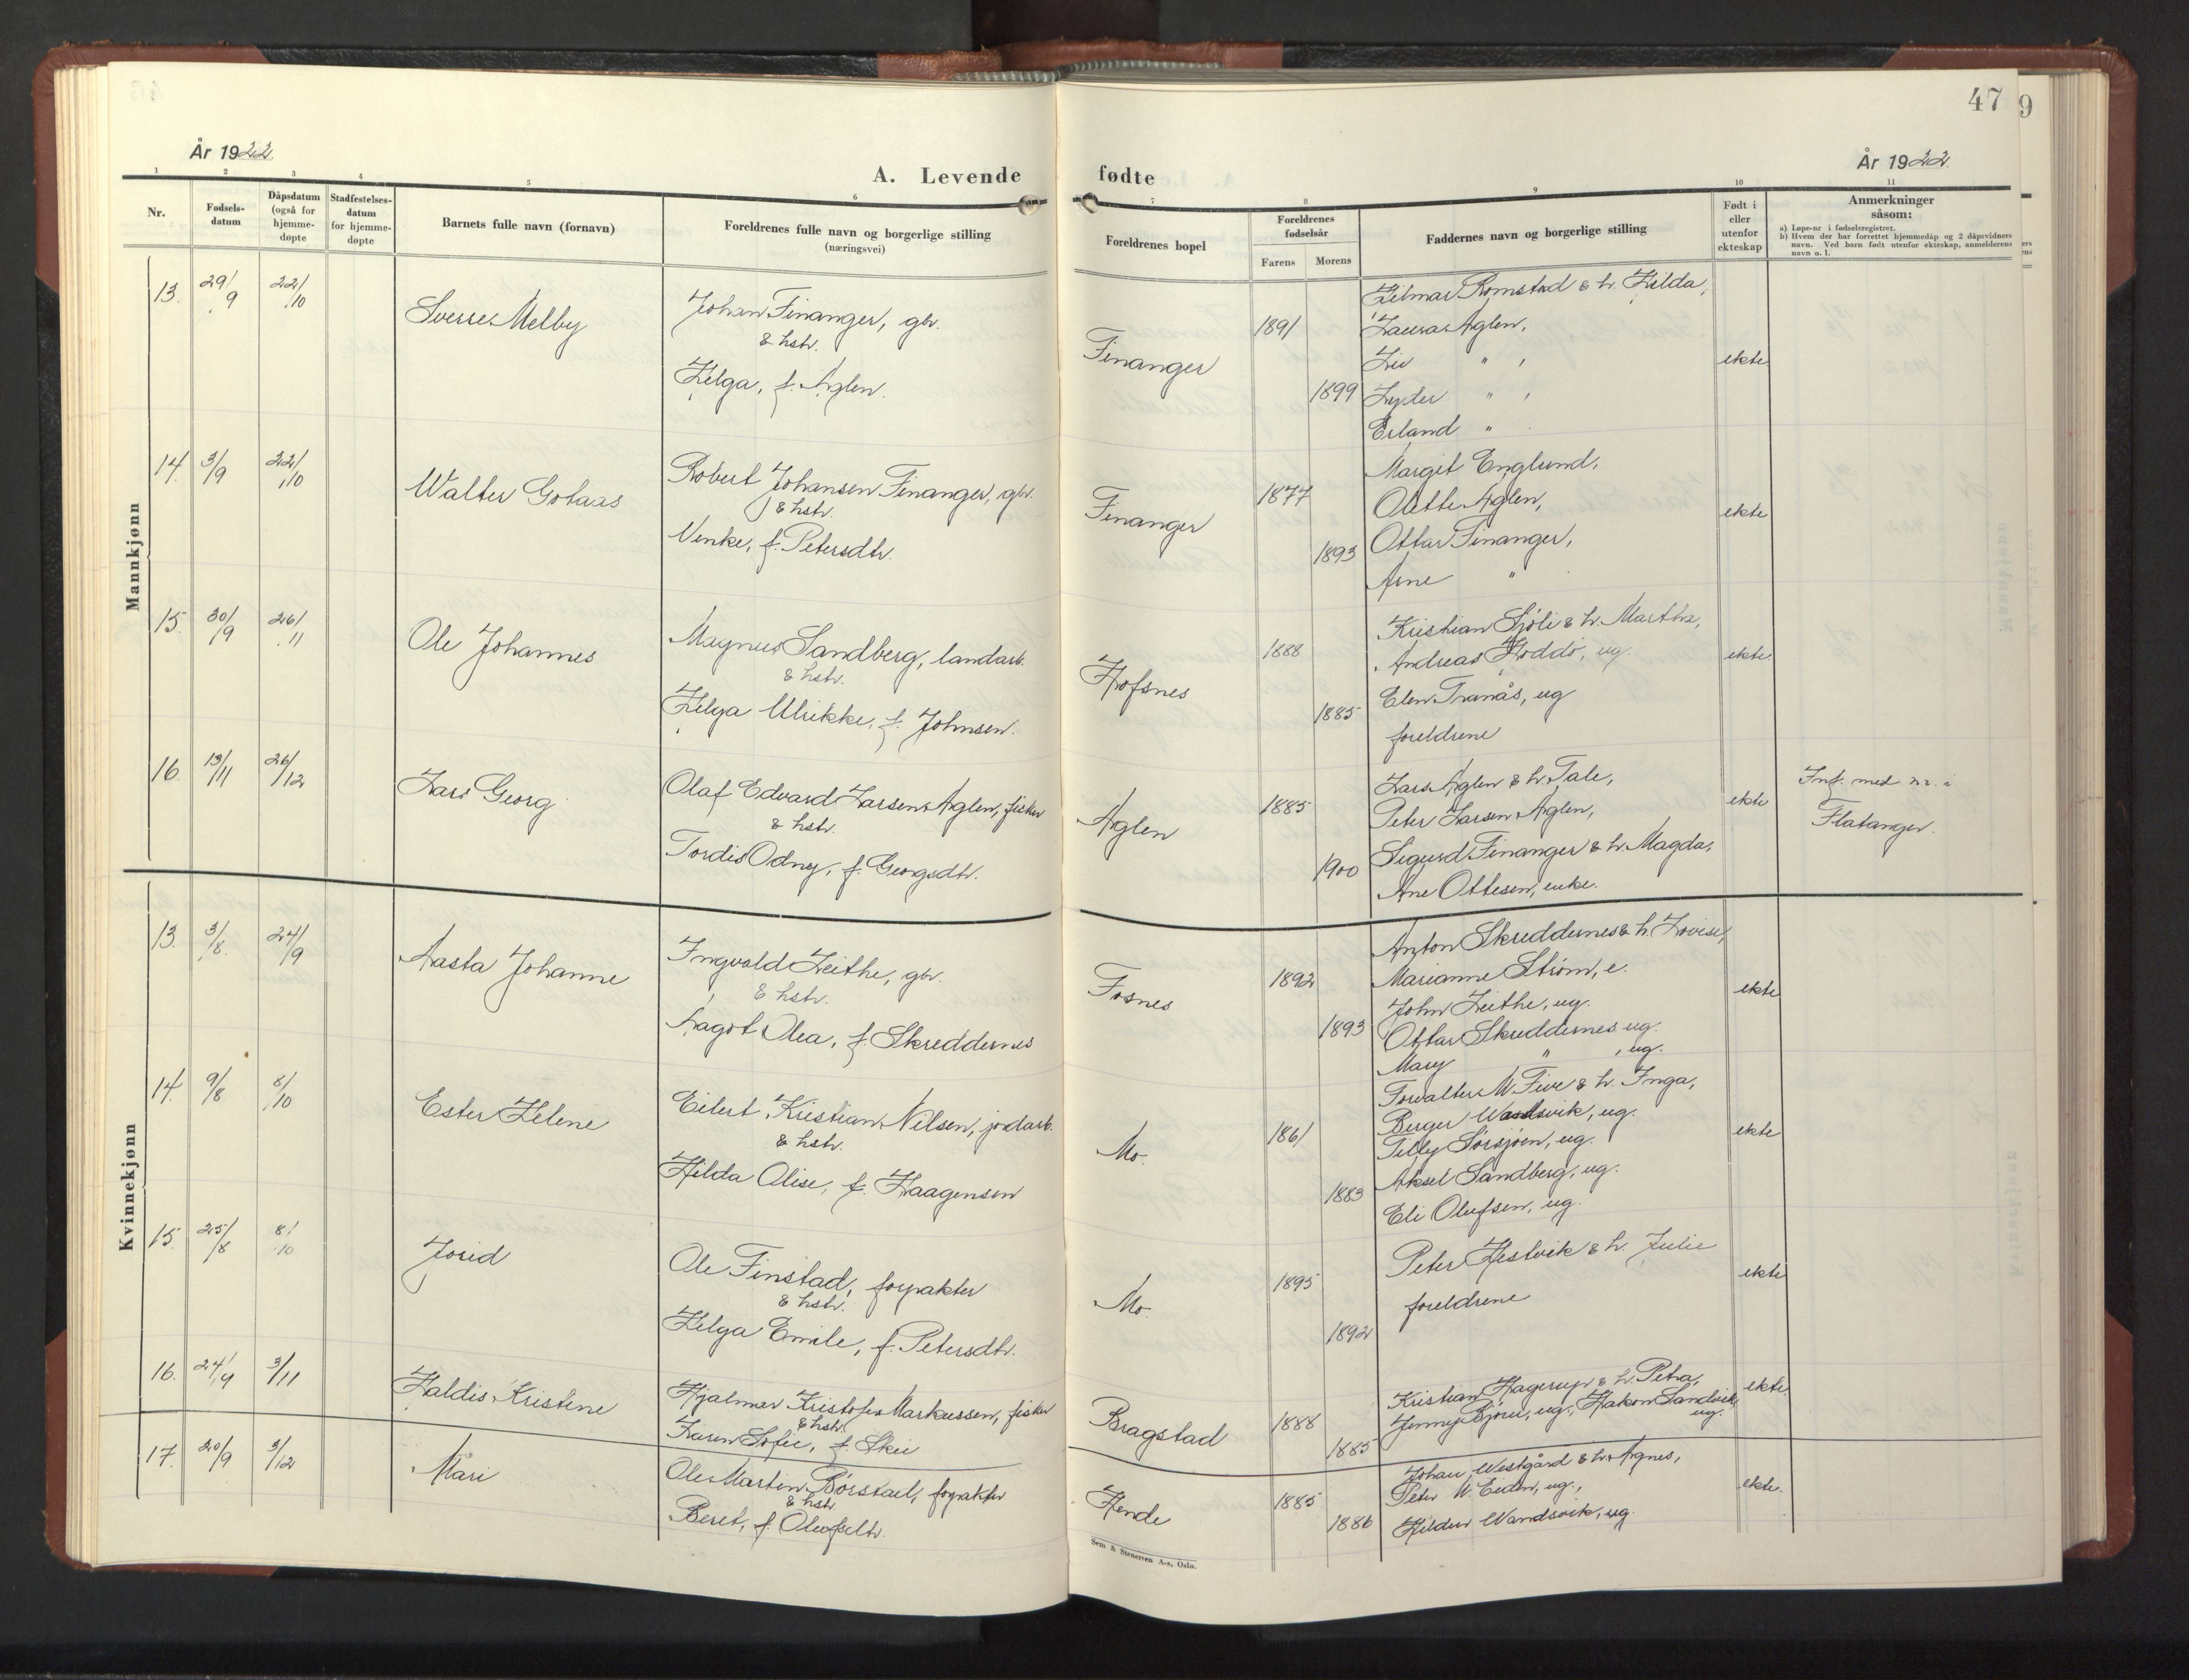 47
9
År 1922.
År 1922.
A. Levende
fødte
1 2 3 4 5 6
7 8 9 10 11
Nr.
Fødsels-
datum
Dåpsdatum
(også for
hjemme-
døpte
Stadfestelses-
datum
for hjemme-
døpte
Barnets fulle navn (fornavn)
Foreldrenes fulle navn og borgerlige stilling
(næringsvei)
Foreldrenes bopel
Foreldrenes
fødselsår
Farens Morens
Faddernes navn og borgerlige stilling
Født i
eller
utenfor
ekteskap
Anmerkninger
såsom:
a) Løpe-nr i fødselsregistret.
b) Hvem der har forrettet hjemmedåp og 2 dåpsvidners
navn. Ved barn født utenfor ekteskap, anmelderens
navn o. l.
Mannkjønn
13. 29/9 22/10
Sverre Melby
Johan Finanger, gbr.
& hstr.
Helga, f. Aglen.
Finanger
1891
1899
Hilmar Romstad & h. Hilda,
Laura Aglen,
Liv " ,
Lyder " ,
Erland "
ekte
14. 3/9 22/10
Walter Gotaas
Robert Johansen Finanger, gbr.
& hstr.
Venke, f. Petersdtr.
Finanger
1877
1893
Margit Englund,
Olette Aglen,
Ottar Finanger,
Arne "
ekte
15. 30/9 26/11
Ole Johannes
Magnus Sandberg, landarb.
& hstr.
Helga Ulrikke, f. Johnsen.
Hofsnes
1888
1885
Kristian Sjøli & h. Martha,
Andreas Hoddø, ug.
Elen Tranås, ug
foreldrene
ekte.
16. 13/11 26/12
Lars Georg
Olaf Edvard Larsen Aglen, fisker
& hstr.
Tordis Odny, f. Georgsdtr.
Aglen
1885
1900
Lars Aglen & h. Tale,
Peter Larsen Aglen,
Sigurd Finanger & h. Magda,
Ane Ottesen, enke.
ekte
Inf. med nr. i
Flatanger.
Kvinnekjønn
13. 3/8. 24/9
Aasta Johanne
Ingvald Leithe, gbr.
& hstr.
Aagot Olea, f. Skreddernes
Fosnes
1892
1893
Anton Skreddernes & h. Lovise,
Marianne Strøm, e.
John Leithe, ug.
Ottar Skreddernes ug.
Mary " , ug.
ekte
14. 9/8 8/10
Ester Helene
Eilert Kristian Nilsen, jordarb.
& hstr.
Hilda Alise, f. Haagensen
Mo.
1861
1883
Forvalter M. Five & h. Inga,
Birger Wandsvik, ug.
Tilly Sørsjøen, ug.
Aksel Sandberg, ug.
Eli Olufsen, ug.
ekte
15. 25/8 8/10
Jorid
Ole Finstad, forpakter
& hstr.
Helga Emile, f. Petersdtr.
Mo.
1895
1892
Peter Hestvik & h. Julie
foreldrene
ekte
16. 24/9 3/11
Haldis Kristine
Hjalmar Kristofer Markussen, fisker
& hstr.
Karen Sofie, f. Skei
Bragstad
1888
1885
Kristian Hagerup & h. Petra,
Jenny Bjøru, ug., Hakon Sandvik,
ug.
ekte.
17. 20/9 3/12
Mari
Ole Martin Børstad, forpakter
& hstr
Beret, f. Olufsdtr.
Hende
1885
1886
Johan Westgård & h. Agnes,
Peter M. Eiden, ug.,
Hildur Wandsvik, ug.
ekte.
Sem & Stenersen A-s, Oslo.